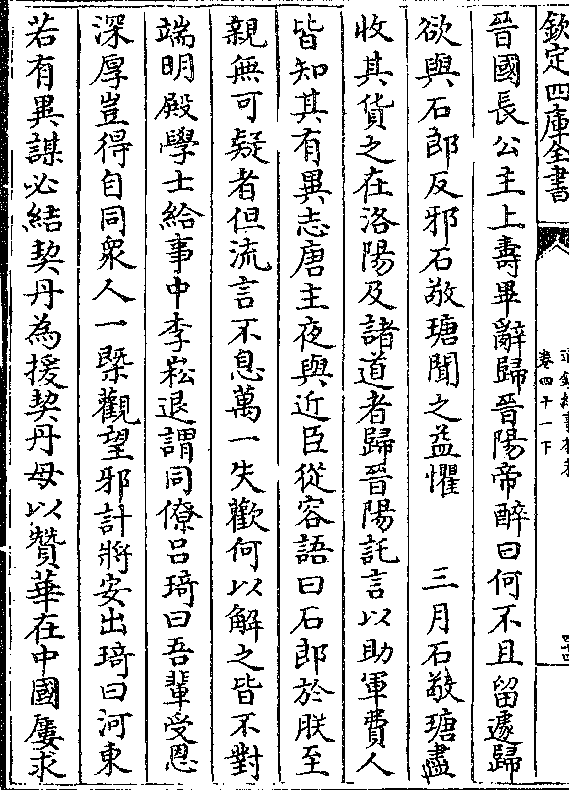 欽定四庫全書
卷四十一下
晉國長公主上壽畢辭歸晉陽帝醉曰何不且留遽歸
欲與石郎反邪石敬瑭聞之益懼　三月石敬瑭盡
收其貨之在洛陽及諸道者歸晉陽託言以助軍費人
皆知其有異志唐主夜與近臣從容語曰石郎於朕至
親無可疑者但流言不息萬一失歡何以解之皆不對
端明殿學士給事中李崧退謂同僚呂琦曰吾輩受恩
深厚豈得自同衆人一槩觀望邪計將安出琦曰河東
若有異謀必結契丹為援契丹母以贊華在中國屢求